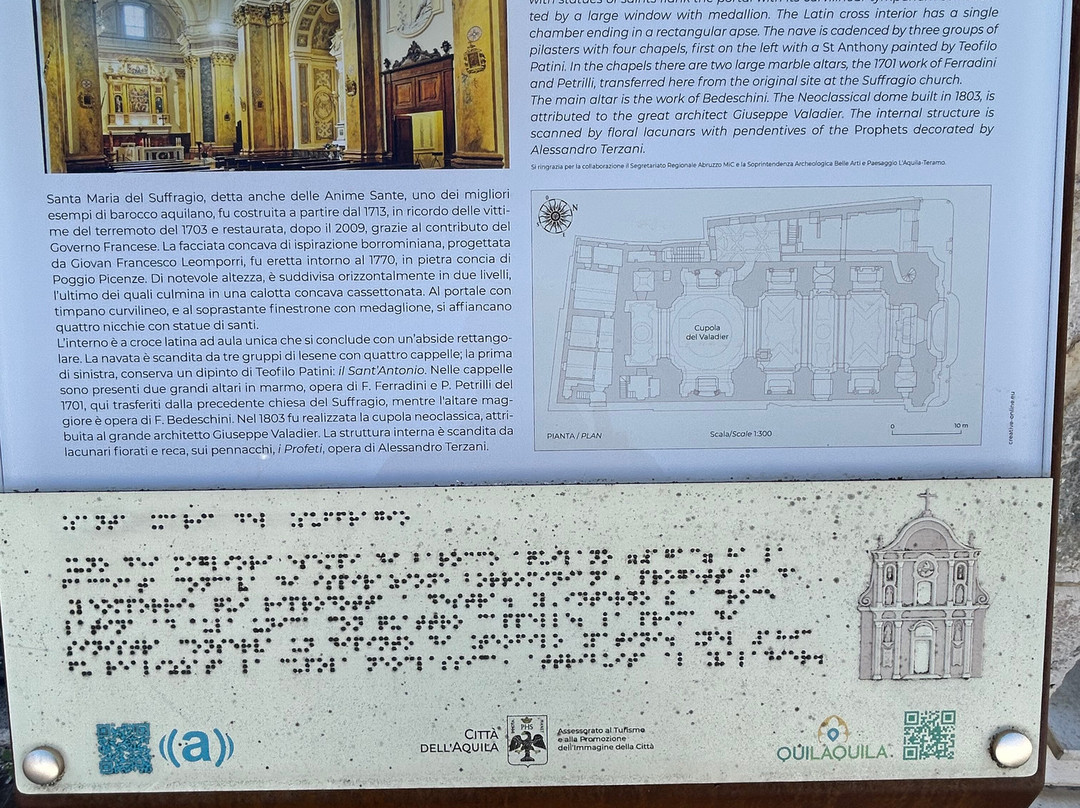 ted by a large window with medallion. The Latin cross interior has a single
chamber ending in a rectangular apse. The nave is cadenced by three groups of
pilasters with four chapels, first on the left with a St Anthony painted by Teofilo
Patini. In the chapels there are two large marble altars, the 1701 work of Ferradini
and Petrilli, transferred here from the original site at the Suffragio church.
The main altar is the work of Bedeschini. The Neoclassical dome built in 1803, is
attributed to the great architect Giuseppe Valadier. The internal structure is
scanned by floral lacunars with pendentives of the Prophets decorated by
Alessandro Terzani.
Si ringrazia per la collaborazione il Segretariato Regionale Abruzzo MiC e la Soprintendenza Archeologica Belle Arti e Paesaggio L'Aquila-Teramo.
Santa Maria del Suffragio, detta anche delle Anime Sante, uno dei migliori
esempi di barocco aquilano, fu costruita a partire dal 1713, in ricordo delle vitti-
me del terremoto del 1703 e restaurata, dopo il 2009, grazie al contributo del
Governo Francese. La facciata concava di ispirazione borrominiana, progettata
da Giovan Francesco Leomporri, fu eretta intorno al 1770, in pietra concia di
Poggio Picenze. Di notevole altezza, è suddivisa orizzontalmente in due livelli,
l'ultimo dei quali culmina in una calotta concava cassettonata. Al portale con
timpano curvilineo, e al soprastante finestrone con medaglione, si affiancano
quattro nicchie con statue di santi.
L'interno è a croce latina ad aula unica che si conclude con un'abside rettango-
lare. La navata è scandita da tre gruppi di lesene con quattro cappelle; la prima
di sinistra, conserva un dipinto di Teofilo Patini: il Sant'Antonio. Nelle cappelle
sono presenti due grandi altari in marmo, opera di F. Ferradini e P. Petrilli del
1701, qui trasferiti dalla precedente chiesa del Suffragio, mentre l'altare mag-
giore è opera di F. Bedeschini. Nel 1803 fu realizzata la cupola neoclassica, attri-
buita al grande architetto Giuseppe Valadier. La struttura interna è scandita da
lacunari fiorati e reca, sui pennacchi, i Profeti, opera di Alessandro Terzani.
N
Cupola
del Valadier
PIANTA / PLAN
Scala/Scale 1:300
0 10 m
creative-online.eu
((a))
CITTÀ
DELL'AQUILA
PHS
Assessorato al Turismo
e alla Promozione
dell'Immagine della Città
QUILAQUILA